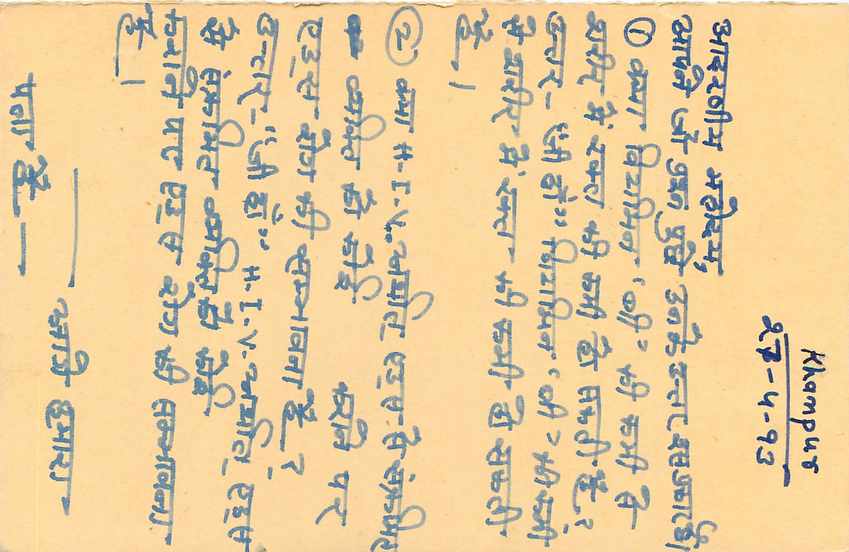 Khampur
२७-4-93
आदरणीय महोदय,
आपने जो प्रश्न पुछे उनके उत्तर इस प्रकार है।
① क्या विटामिन 'बी' की कमी से
शरीर में रक्त की कमी हो सकती है ?
उत्तर - "जी हां" विटामिन 'बी' की कमी
से शरीर में रक्त की कमी हो सकती
है।
② क्या H.I.V. अर्थात् एड्स से संक्रमित
व्यक्ति को कोई करने पर
एड्स रोग की सम्भावना है ?
उत्तर - "जी हां" H.I.V. अर्थात् एड्स
से संक्रमित व्यक्ति से कोई
कराने पर एड्स रोग की सम्भावना
है।
आगे हमारा
पता है -